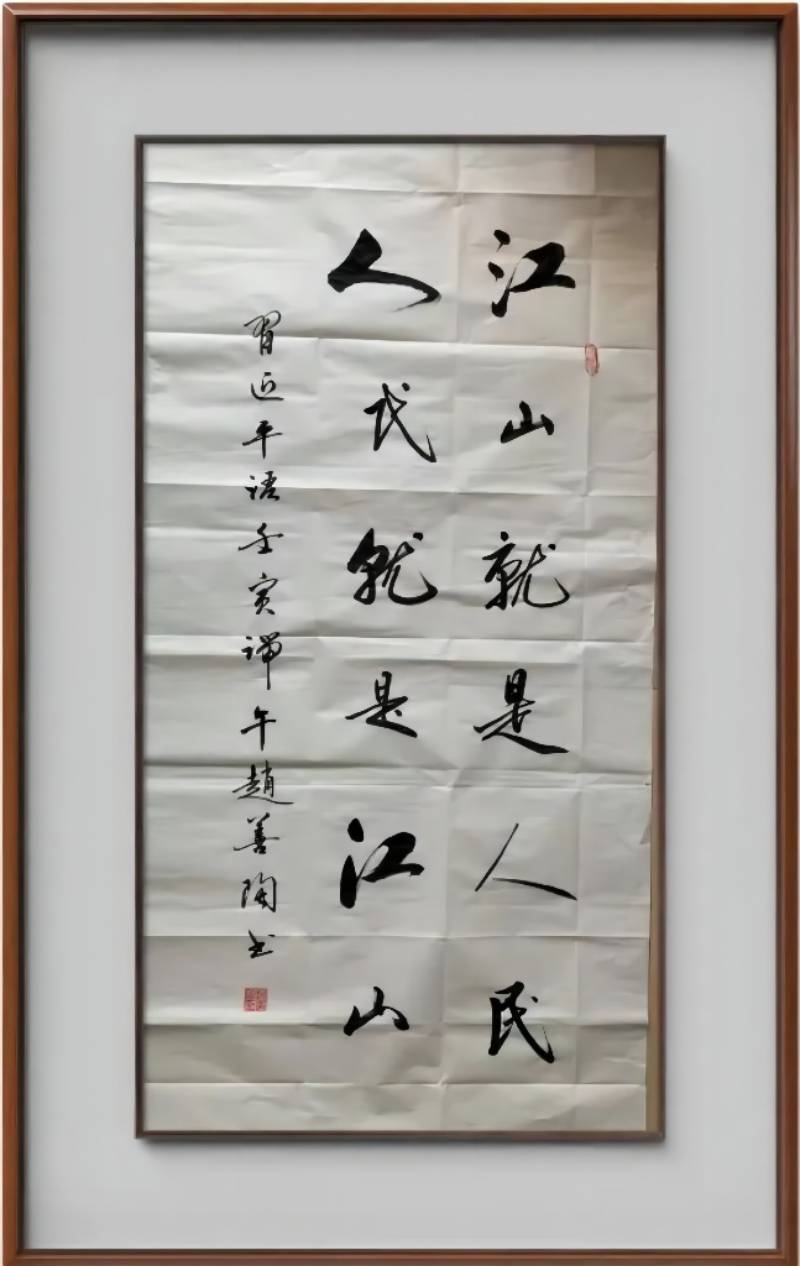 江山就是人民
人民就是江山
習近平语壬寅端午趙善陶书